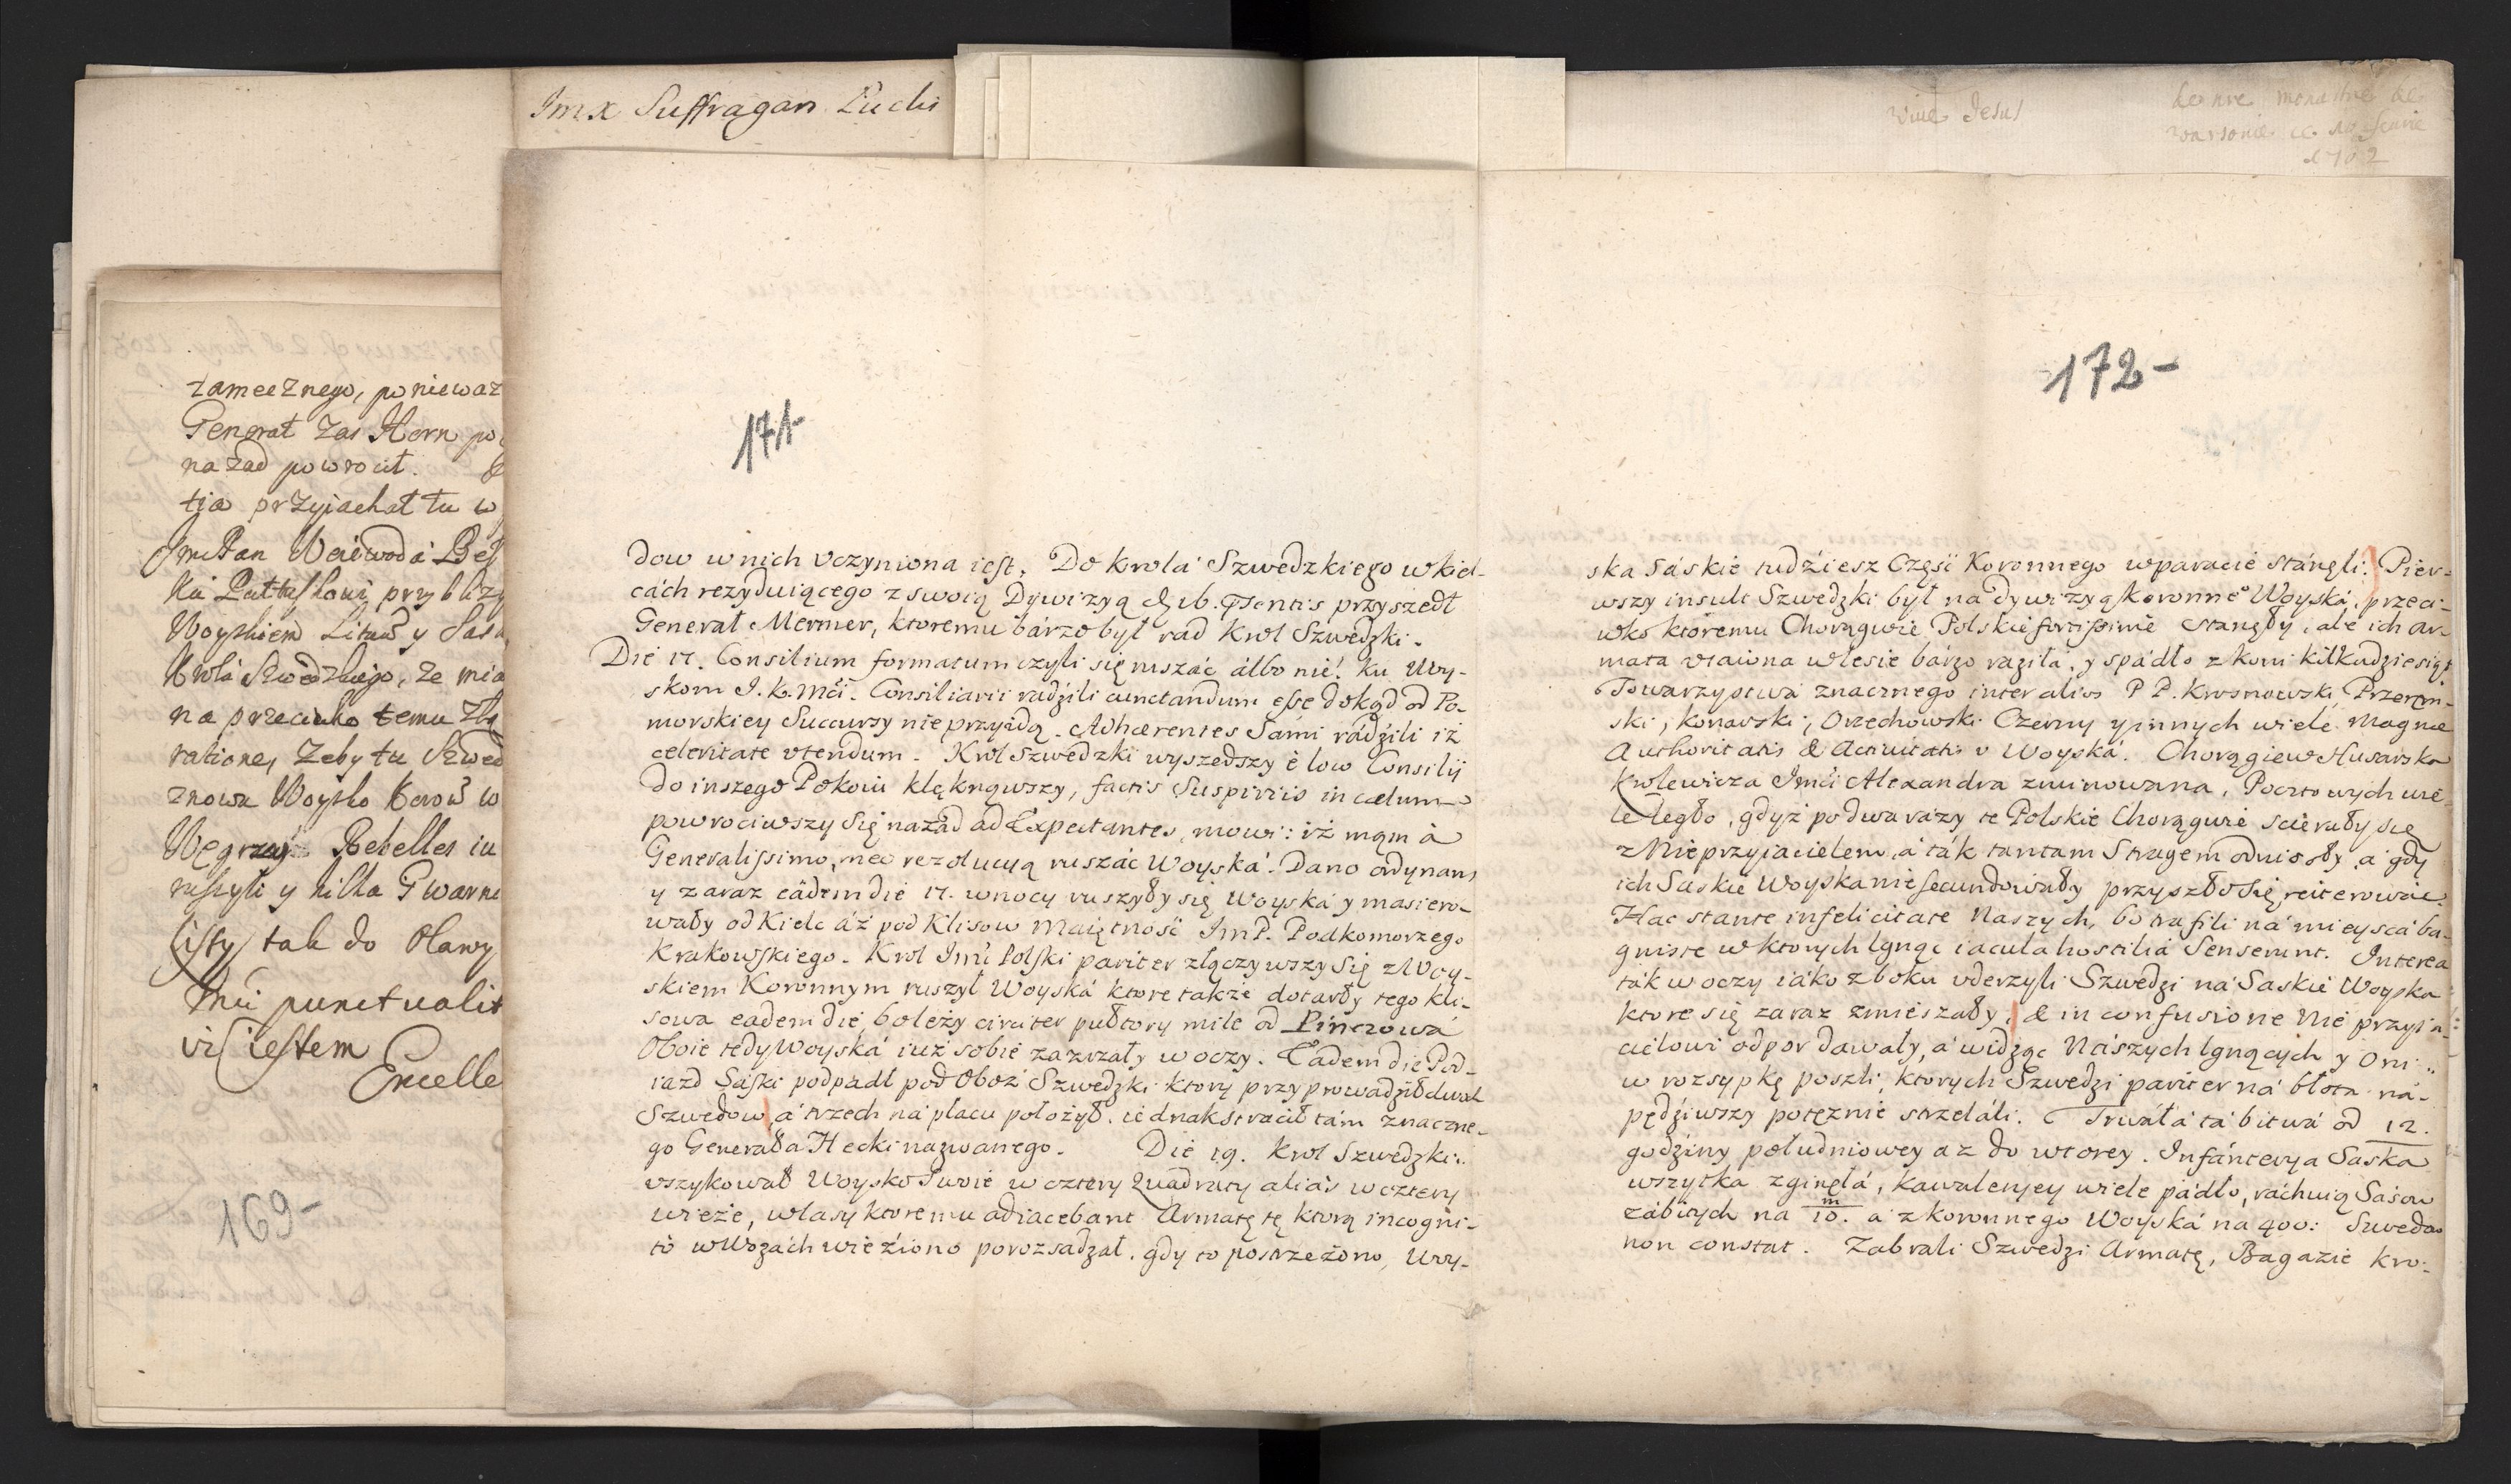 Imx Suffragan Lucki
vive Jesus
de nre monastre de
warsovie ce 10
1702
zamecznego, poniewaz
Generał zas Horn po
nazad powrocił.
tia przyiachał tu w
JmcPan Woiewoda Bel
Ku Pułtuskowi przybliży
Woyskiem Litew y Sas
Krola Szwedzkiego, ze mia
na przeciwko temu
ratione, zeby tu Szwed
znowu Woysko Koroñ w
Węgrzy Rebelles iu
ruszyli y kilka Gwarni
listy tak do Oławy
Mci punctualit
iestem
Excelle
169-
171-
dow w nich vczyniona iest. Do Krolá Szwedzkiego w Kiel-
cách rezyduiącego z swoią Dywizyą
Generał Mermer, ktoremu bárzo był rad Krol Szwedzki.
Die 17. Consilium formatum czyli się ruszáć álbo nié! ku Woy-
skom J.K.Mći. Consiliarii rádzili cunctandum esse dokąd od Po-
morskiey Succursy nie przyidą. Adhærentes Sámi rádzili iż
celeritate vtendum. Krol Szwedzki wyszedszy è loco Consilij
do inszego Pokoiu klęknąwszy, factis Suspiriis in cælum
powrociwszy się nazad ad Expectantes, mowi: iż mąm à
Generalissimo meo rezolucyą ruszáć Woyská. Dano ordynans
y zaraz eâdem die 17. w nocy ruszyły się Woyská y masiero-
wały od Kielc áż pod Klisow Maiętność JmP. Podkomorzego
Krakowskiego. Krol Jmći Polski pariter złączywszy się z Woy-
skiem Koronnym ruszył Woyská ktore także dotarły tego Kli-
sowa eadem die, bo leży circiter pułtory mile od Pinczowá
Oboie tedy Woyská iuż sobie zazrzały w oczy. Eadem die Pod-
iazd Sáski podpadł pod Oboz Szwedzki ktory przyprowádził dwuch
Szwedow, á trzech ná placu położył. iednak stracił tám znaczne-
go Generała Hecki nazwanego. Die 19. Krol Szwedzki
vszykował Woysko Suoie w cztery Quadraty aliàs w cztery
wieże, w lasy ktoremu adiacebant Armatę tę ktorą incogni-
tò w Wozách wieziono porozsadzał. gdy to postrzeżono, Woy-
172-
ska Sáskie tudźiesz Części Koronnego w paracie stánęli. Pier-
wszy insult Szwedzki był na dywizyą Koronne° Woyská, przeci-
wko ktoremu Chorągwie Polskie fortissimè stanęły, ale ich Ar-
mata vtaiona w lesie bárzo raziłá, y spádło z koni kilkudziesiąt
Towarzystwá znacznego inter alios P P. Krosnowski, Przeręm-
ski, Konarski, Orzechowski Czerny y innych wiele Magnæ
Authoritatis & Activitatis v Woyská. Chorągiew Husarska
Krolewicza Jmći Alexandra zruinowana, Pocztowych wie-
le legło, gdyż po dwa rázy te Polskie Chorągwie scierały się
z Nieprzyiacielem, á ták tantam Stragem odniosły, a gdy
ich Saskie Woyska nie secundowáły przyszło się reiterowáć.
Hac stante infelicitate Naszych, bo trafili ná mieyscá ba-
gniste w ktorych lgnąc iacula hostilia Senserunt. Interea
ták w oczy iáko z boku vderzyli Szwedzi ná Saskie Woyska
ktore się zaraz zmieszały, & in confusione Nieprzyia-
cielowi odpor dawały, a widząc Nászych lgnących y Oni
w rozsypkę poszli, ktorych Szwedzi pariter ná błota ná-
pędziwszy potężnie strzeláli. Trwáłá tá bitwá od 12.
godziny południowey az do wtorey. Infánterya Saska
wszytka zginęłá, Kawaleryey wiele pádło, ráchuią Sásow
zábitych na m/10. a z koronnego Woyská ná 400: Szwedow
non constat. Zabrali Szwedzi Armatę, Bagazie Kro-